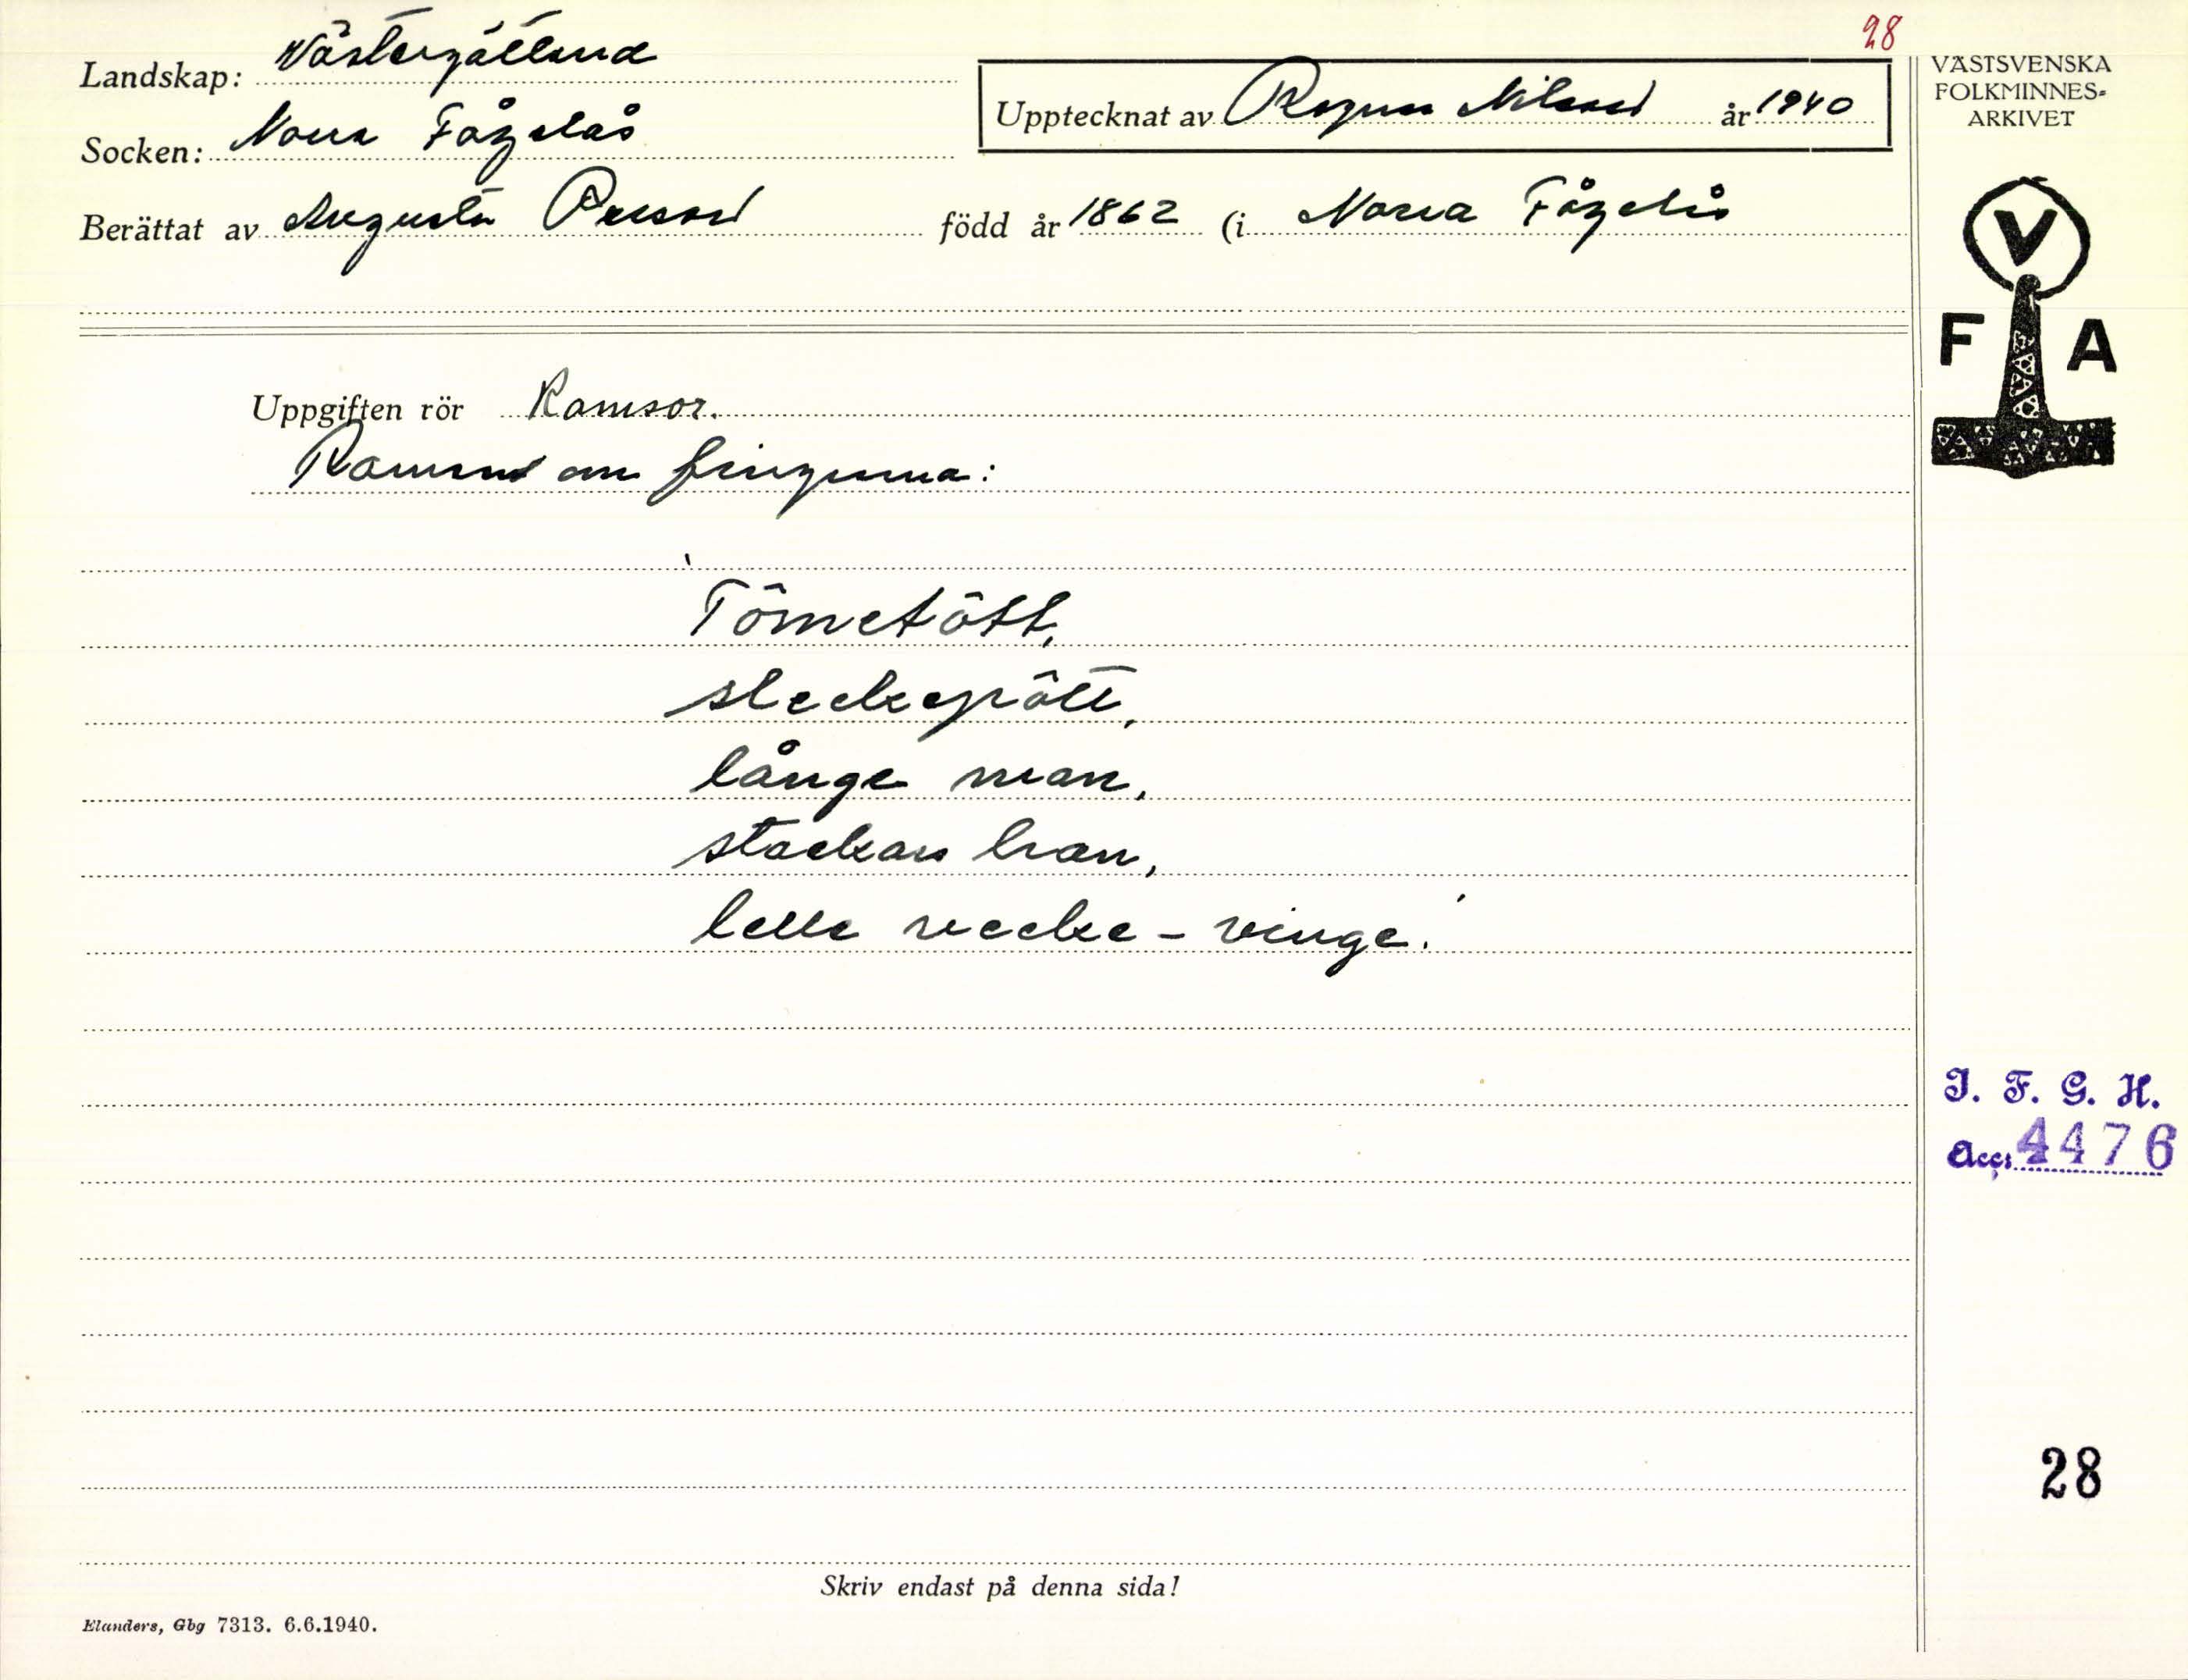 28
Landskap: Västergötland
Socken: Norra Fågelås
Upptecknat av Ragnar Nilsson år 1940
Berättat av Augusta Persson född år 1862 (i Norra Fågelås
VÄSTSVENSKA
FOLKMINNES-
ARKIVET
V
F A
Uppgiften rör Ramsor.
Ramsa om fingrarna:
Tômetôtt,
sleckepôtt,
långe man,
stackars han,
lelle vecke-vinge.
I. F. G. H.
Acc. 4476
28
Skriv endast på denna sida!
Elanders, Gbg 7313. 6.6.1940.